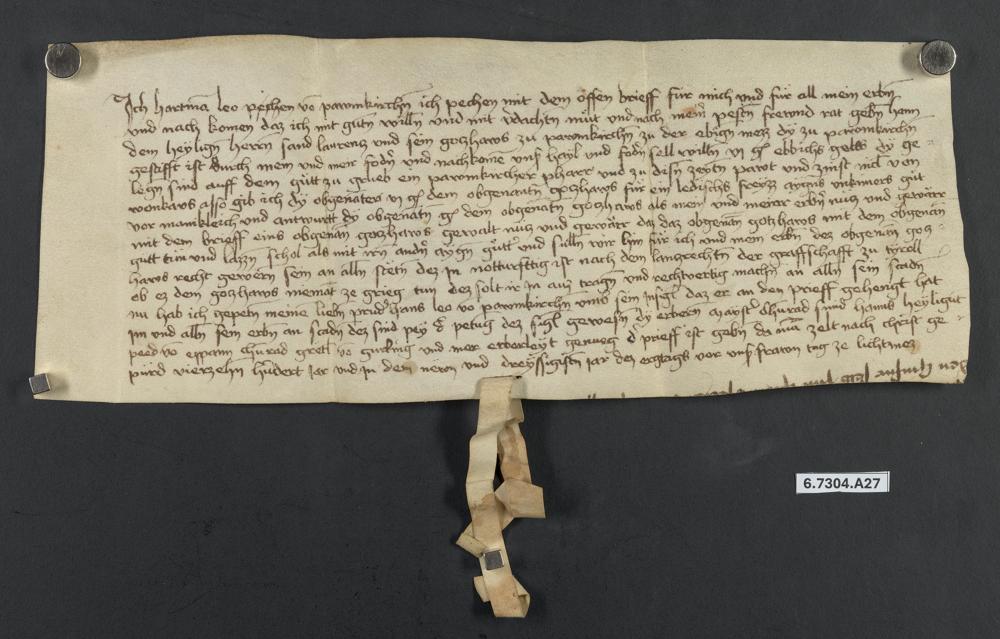 Ich hartman leo vo parwmkirchn ich pechen mit dem offen brieff für mich und für all mein erbn
und nach komen daz ich mit gutn willn und mit wdachtn müt und nach meinr pestn frewnd rat gebn hann
dem heyligen herrn sand laurenz und sein gozhaws zu parwmkirchn zu der ebign mezz dy zu parwmkirchn
gestifft ist durch mein und meinr fodn und nachkome unsr hayl und fodn sell willn vi gl ebbichs gelts dy ge-
legn sind auff dem gütt zu grueb ein parwmkircher pharr und zu disn zeytn pawt und zinst niel von
wenkaws also gib ich dy obgenatn vi gl dem obgenantn gozhaws für ein ledischs freyzz aygns unkumers gut
vor manikleich und antwurtt dy obgenatn gl dem obgenatn gozhaws als mein und meinr erbn nuz und gewär
mit dem brieff eins obgenan gozhaws gewalt nuz und gewär daz daz obgenan gotzhaws mit dem obgenan
gutt tun und lazzn schol als mit irn andn aygn guttr und sulln wir hin für ich und mein erbn dez obgenan goz-
haws recht gewern sein an alln stetn dez in notturfttig ist nach dem lanzrechtn der graffschafft zu tyroll
ob ez dem gozhaws niemat ze krieg tun dez solt ir in auz tragn und rechtvertig machn an alln sein scadn
nu hab ich gepetn meine liebn prudr hans leo vo parwmkirchn umb sein insigl daz er an den prieff gehengt hat
im und alln sein erbn an scadn dez sind pey d petug dez sigl gewesn dy erbern mayster chunrad smid hanns heyligut
peed vo eppann chunrad gretl vo gurling und mer erberleyt genueg d prieff ist gebn do man zelt nach christ ge-
pürd vierzehn hundert jar und in dem newn und dreyssigistn jar dez ergtags vor unsr frawon tag ze liechtmez
6.7304.A27